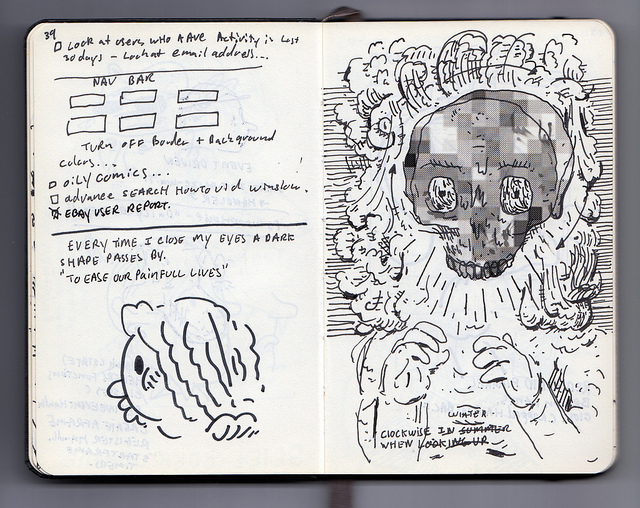 39
LOOK AT USERS, WHO HAVE Activity in Last
30 days - Look at email address...
NAV BAR
TURN OFF Border + Background
colors...
oily comics...
advance SEARCH How to vid winslow.
EBAY USER REPORT.
EVERY TIME I CLOSE MY EYES A DARK
SHAPE PASSES BY.
"TO EASE OUR PAINFULL LIVES"
WINTER
CLOCKWISE IN SUMMER
WHEN LOOKING UP